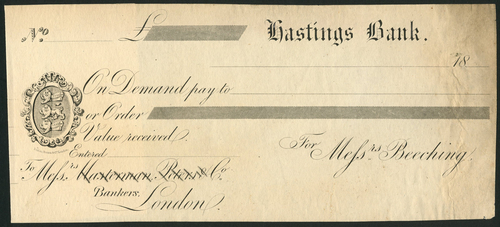 No. £ Hastings Bank.
18
On Demand pay to
or Order
Value received.
Entered For
To Messrs. Masterman, Peters & Co. Messrs. Beeching.
Bankers.
London.